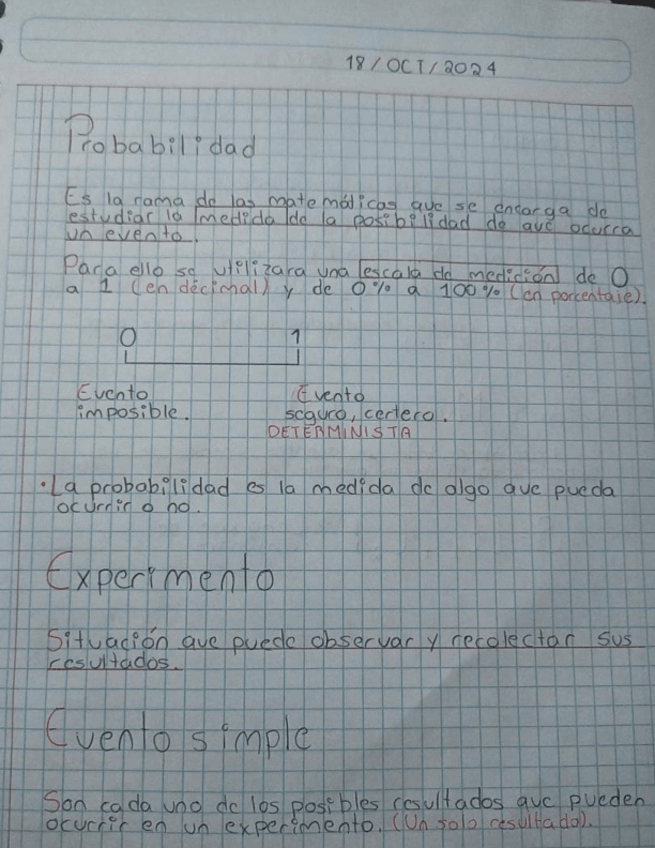 18/OCT/2024
Probabilidad
Es la rama de las matemáticas que se encarga de
estudiar la medida de la posibilidad de que ocurra
un evento.
Para ello se utilizara una escala de medición de 0
a 1 (en décimal) y de 0% a 100% (en porcentaje).
0 1
Evento Evento
imposible. seguro, certero.
DETERMINISTA
• La probabilidad es la medida de algo que pueda
ocurrir o no.
Experimento
Situación que puede observar y recolectar sus
resultados.
Evento simple
Son cada uno de los posibles resultados que pueden
ocurrir en un experimento. (Un solo resultado).